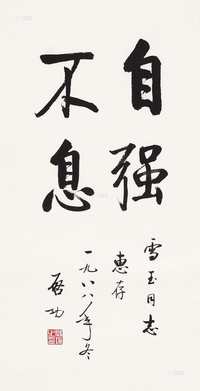 自强
不息
雪玉同志
惠存
一九八八年冬
启功